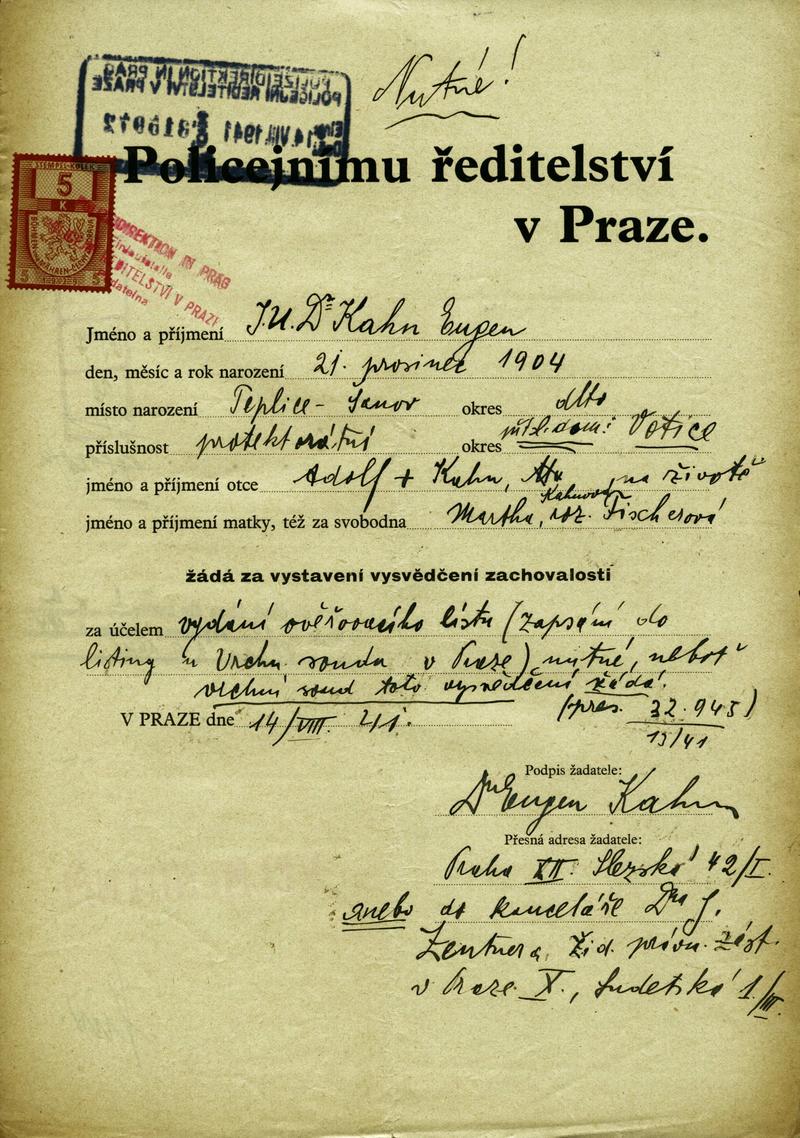 Nutné!
POLIZEIDIREKTION IN PRAG
POLICEJNÍ ŘEDITELSTVÍ V PRAZE
14.VIII.1941
STEMPEL KOLEK
5
K
BÖHMEN
MÄHREN
5 5
DIREKTION IN PRAG
DITELSTVÍ V PRAZE
datelna
Policejnímu ředitelství
v Praze.
Jméno a příjmení J.U.Dr Kahn Eugen
den, měsíc a rok narození 21. prosinec 1904
místo narození Teplice-Šanov okres dtto
příslušnost protektorátní okres Votice
jméno a příjmení otce Adolf + Kahn, na životě
Kahnová
jméno a příjmení matky, též za svobodna Martha, roz. Fischerová
žádá za vystavení vysvědčení zachovalosti
za účelem vydání ověřovacího listu (zapsání do
listiny u Vrchn. soudu v Praze) nutné, neboť
vrchní soud toto vysvědčení žádá.
V PRAZE dne 14/VIII. 41. (pres. 32.945)
13/41
Podpis žadatele:
Dr Eugen Kahn
Přesná adresa žadatele:
Praha XII. Slezská 42/I.
anebo do kanceláře Dra J.
Zentnera, žid. právn. zást.
v Praze X., Sudetská 1/III